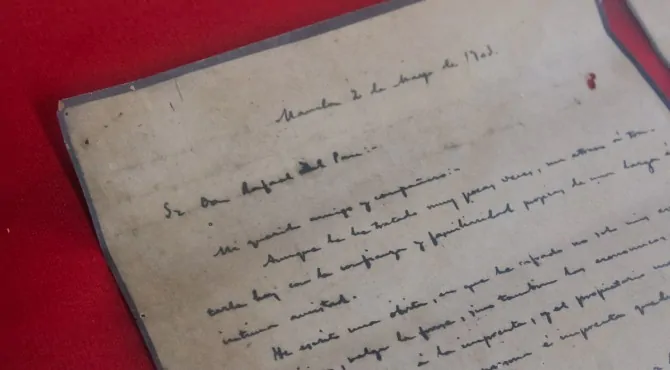 Manila 2 de Mayo de 1903.
Sr Don Rafael del Pan.-
Mi querido amigo y compañero:-
Aunque le he tratado muy pocas veces, me atrevo á
carle hoy con la confianza y familiaridad propias de una larga é
íntima amistad.
He escrito una obra, en que he no solo mis
valga la frase, sino tambien los
á la imprenta, y el propietario
é imprenta